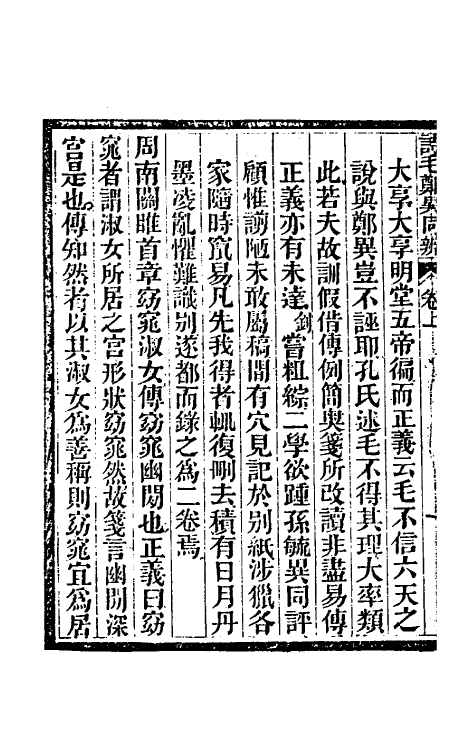 詩毛鄭異同辨 卷上
大享大享明堂五帝徧而正義云毛不信六天之
說與鄭異豈不誣耶孔氏述毛不得其理大率類
此若夫故訓假借傳例簡奥箋所改讀非盡易傳
正義亦有未達釗嘗粗綜二學欲踵孫毓異同評
顧惟謭陋未敢屬稿閒有穴見記於別紙涉獵各
家隨時竄易凡先我得者輒復刪去積有日月丹
墨凌亂懼難識別遂都而錄之為二卷焉
周南關雎首章窈窕淑女傳窈窕幽閒也正義曰窈
窕者謂淑女所居之宮形狀窈窕然故箋言幽閒深
宮是也傳知然者以其淑女為善稱則窈窕宜為居